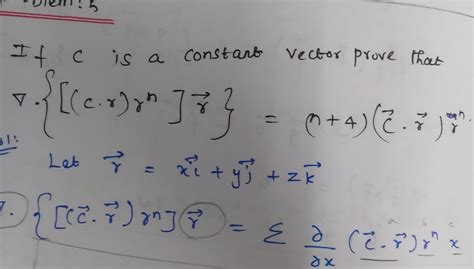 Problem: 5
If c is a constant vector prove that
∇·{[(c·r)rⁿ]r⃗} = (n+4)(c⃗·r⃗)rⁿ.
Let r⃗ = xi⃗ + yj⃗ + zk⃗
∇·{[(c⃗·r⃗)rⁿ]r⃗} = Σ ∂/∂x (c⃗·r⃗)rⁿ x